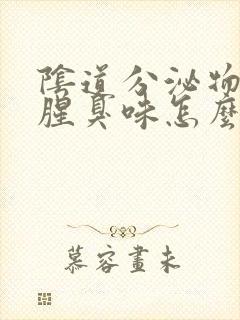 陰道分泌物
腥臭味怎麼
慕容畫未